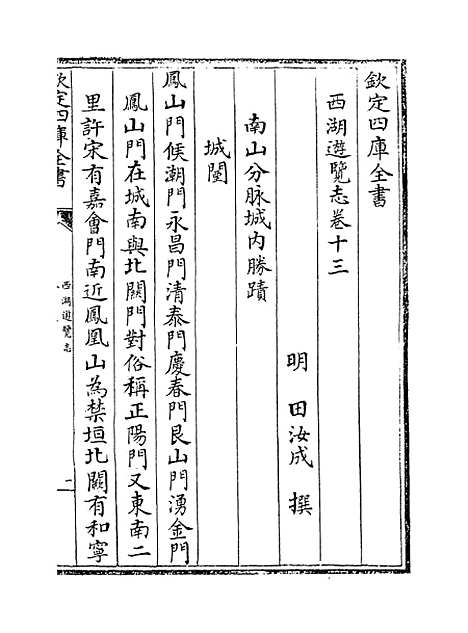 欽定四庫全書
西湖遊覽志卷十三
明 田汝成 撰
南山分脉城内勝蹟
城闉
鳳山門候潮門永昌門清泰門慶春門艮山門湧金門
鳳山門在城南與北關門對俗稱正陽門又東南二
里許宋有嘉會門南近鳳凰山為禁垣北闕有和寧
欽定四庫全書
西湖遊覽志